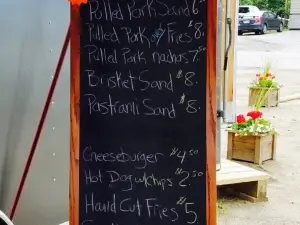 Pulled Pork Sand 6.
Pulled Pork w/ Fries $8.
Pulled Pork nachos 7.50
Brisket Sand $8.
Pastrami Sand $8.
Cheeseburger $4.50
Hot Dog w/chips $2.50
Hand Cut Fries $5